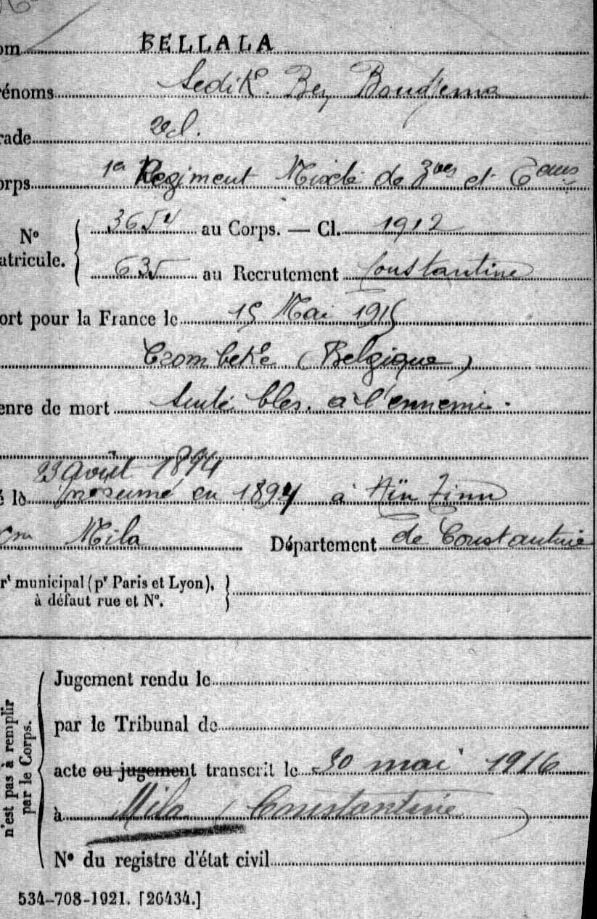 om BELLALA
énoms Sedik Bey Boudjema
rade 2e cl.
orps 1er Régiment Mixte de Zves et
No atricule.
3654 au Corps. — Cl. 1912
635 au Recrutement Constantine
ort pour la France le 15 Mai 1915
(Belgique)
enre de mort Suite bles. à l'ennemi.
23 août 1894
é le présumé en 1894 à Aïn Tinn
Mila Département de Constantine
rt municipal (pr Paris et Lyon),
à défaut rue et No.
n'est pas à remplir
par le Corps.
Jugement rendu le
par le Tribunal de
acte ou jugement transcrit le 30 mai 1916
à Mila (Constantine)
No du registre d'état civil
534-708-1921. [26434.]